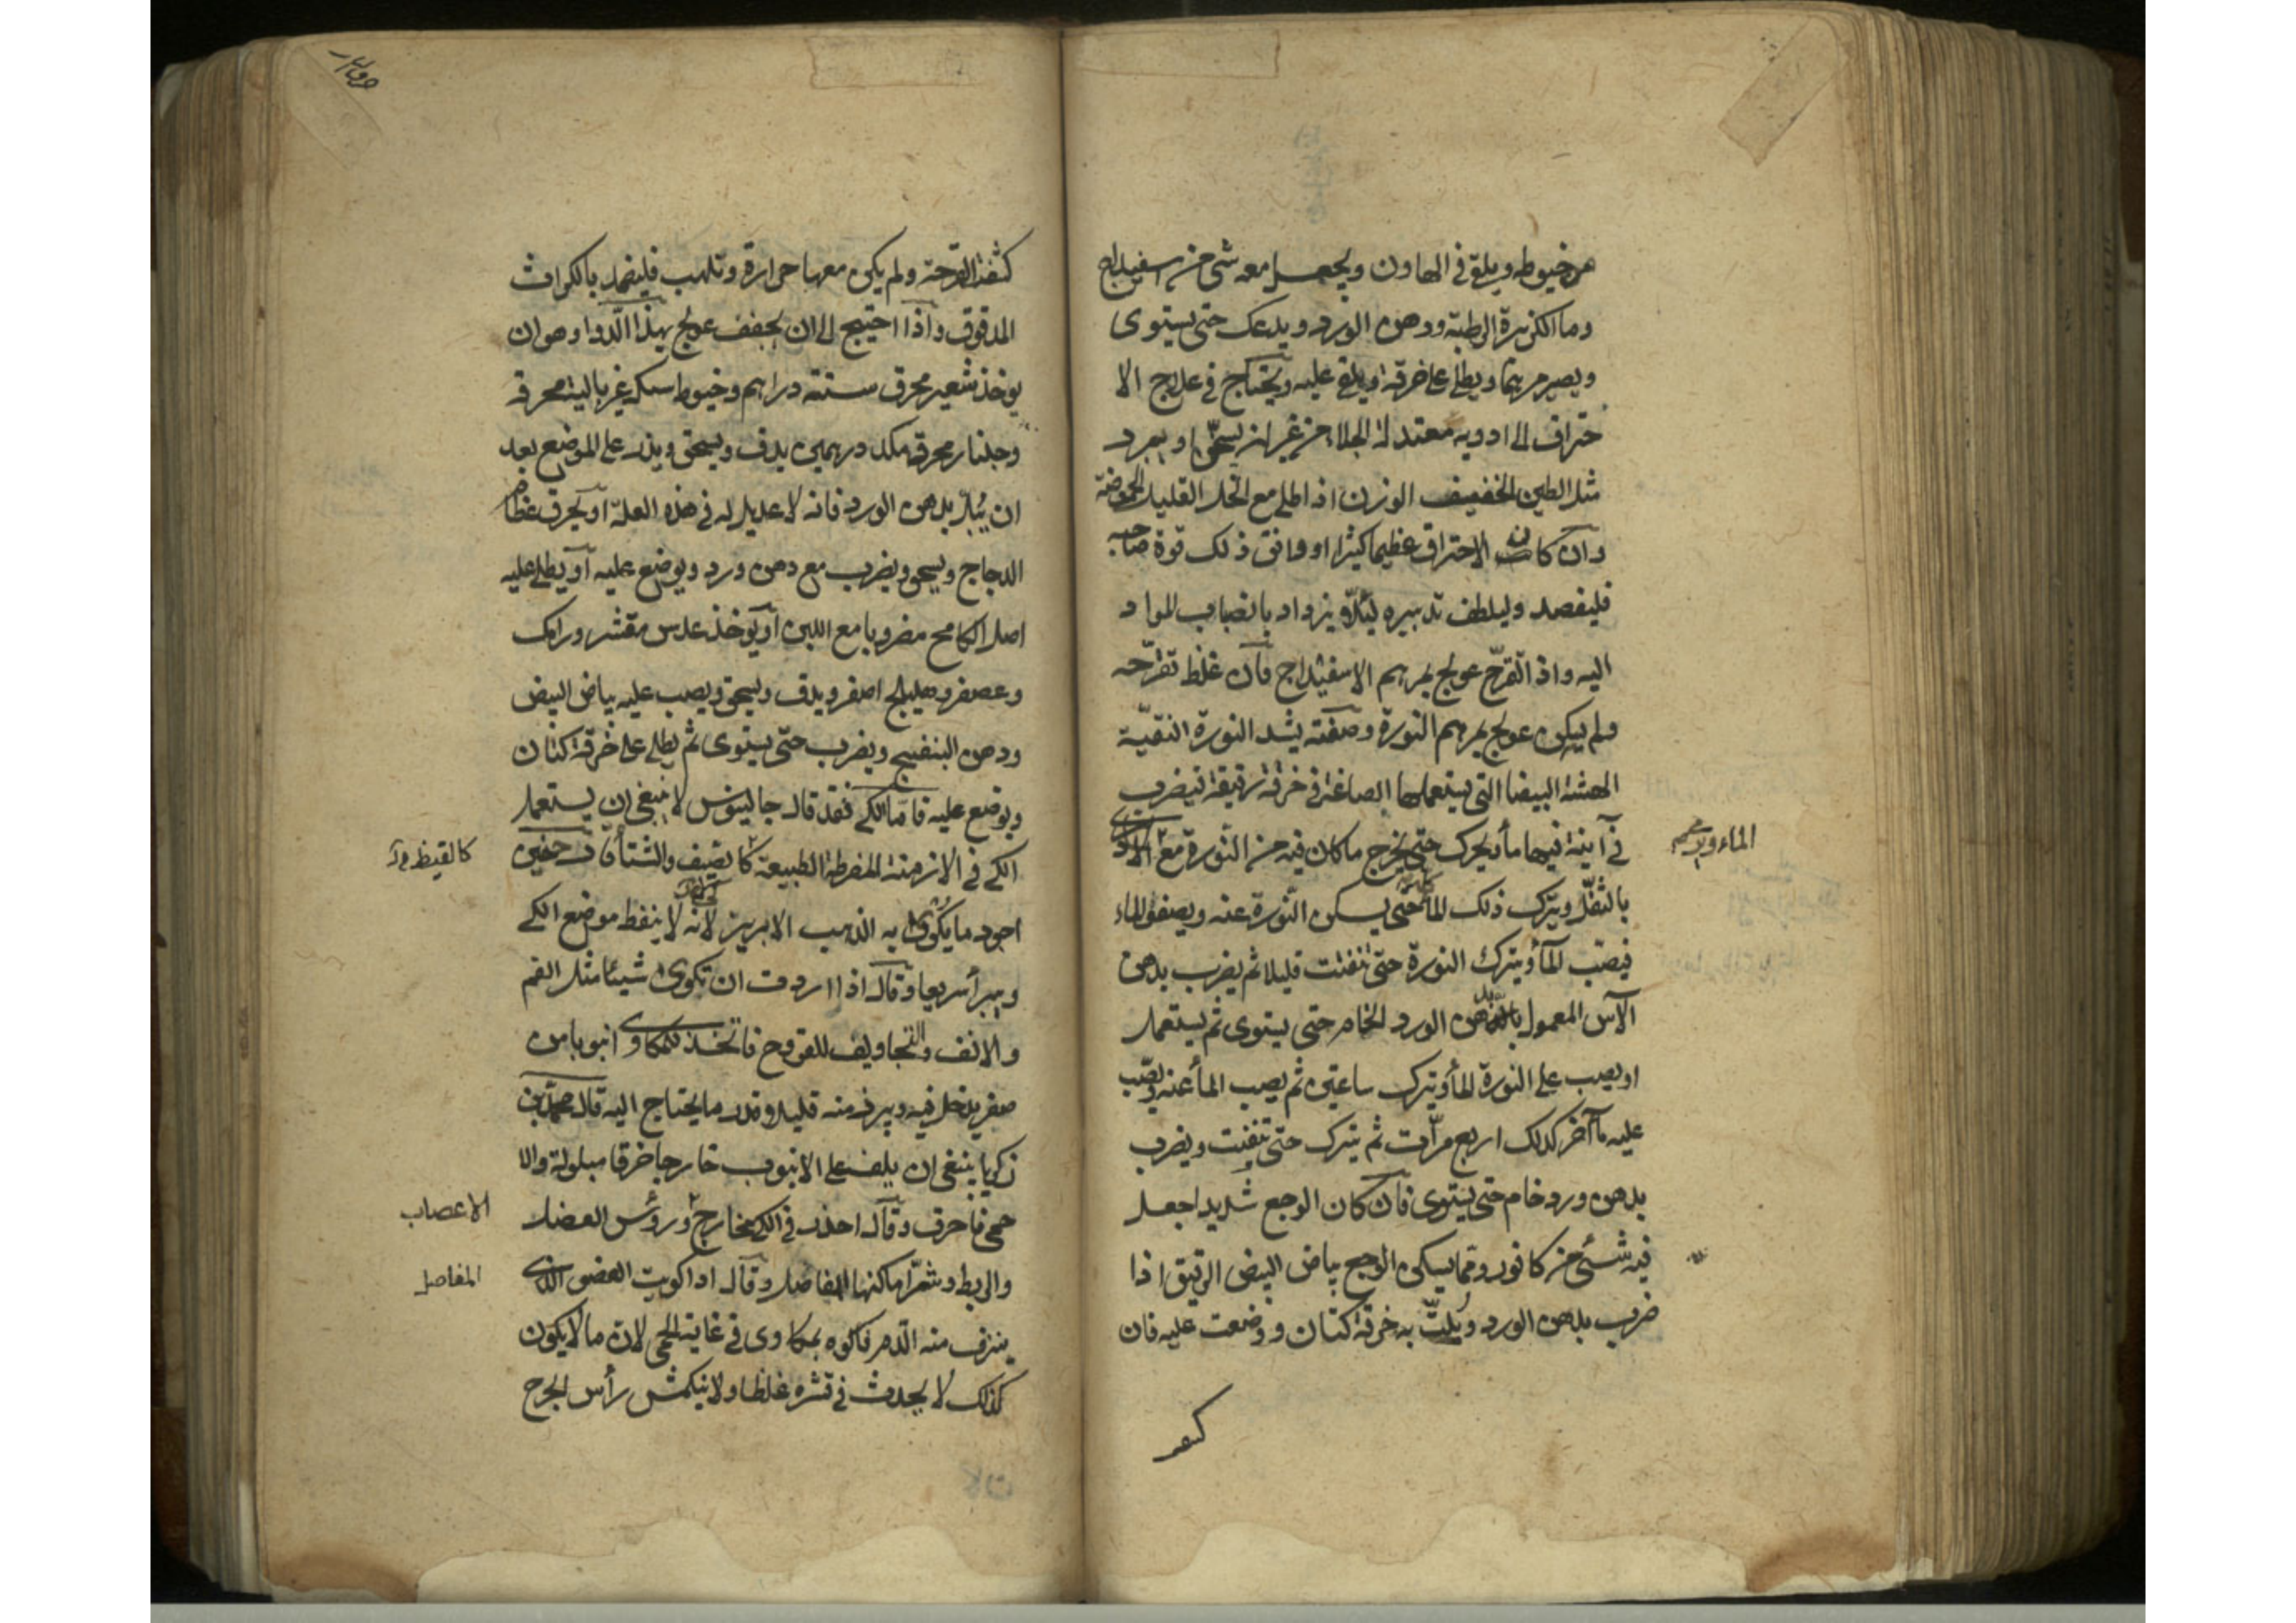 من خيوطه ويلقى في الهاون ويجعل معه شي من اسفيداج
وما الكزبرة الرطبة ودهن الورد ويدعك حتى يستوى
ويصير مرهما ويطلى على خرقة ويلقى عليه ويحتاج في علاج الا
حتراق الى ادويه معتدلة الجلاء من غير ان يسخن او يبرد
مثل الطين الخفيف الوزن اذا طلى مع الخل القليل الحموضة
وان كان الاحتراق عظيما كثيرا او وافق ذلك قوة صاحبه
فليفصد وليلطف تدبيره ليلا يزداد بانصباب المواد
اليه واذا تقرح عولج بمرهم الاسفيداج فان غلظ تقرحه
ولم يكن عولج بمرهم النورة وصفته يشد النورة النقية
الهشة البيضا التي يستعملها الصاغة في خرقة رقيقة فيضرب
في آنية فيها ماء ويحرك حتى يخرج ما كان فيه من النورة مع
الماء و
بالثفل ويترك ذلك الماء حتى يسكن النورة عنه ويصفو الماء
فيصب الماء ويترك النورة حتى تتفتت قليلا ثم يضرب بدهن
الآس المعمول بدهن الورد الخام حتى يستوى ثم يستعمل
او يصب على النورة الماء ويترك ساعتين ثم يصب الماء عنه ويصب
عليه ماء آخر كذلك اربع مرات ثم يترك حتى تتفتت ويضرب
بدهن ورد خام حتى يستوى فان كان الوجع شديدا جعل
فيه شئ من كافور ومما يسكن الوجع بياض البيض الرقيق اذا
ضرب بدهن الورد وبلت به خرقة كتان ووضعت عليه فان
كثفت القرحة ولم يكن معها حرارة وتلهب فليضمد بالكراث
المدقوق واذا احتيج الى ان يجفف عولج بهذا الدوا وهو ان
يوخذ شعير محرق ستة دراهم وخيوط سك غربالية محرقة
وجلنار محرق مكد درهمين يدق ويسحق ويذر على الموضع بعد
ان يبل بدهن الورد فانه لا عديل له في هذه العلة او يحرق عظام
الدجاج ويسحق ويضرب مع دهن ورد ويوضع عليه او يطلى عليه
اصل الكامح مضروبا مع اللبن او يوخذ عدس مقشر ورامك
وعصفر وهليلج اصفر ويدق ويسحق ويصب عليه بياض البيض
ودهن البنفسج ويضرب حتى يستوى ثم يطلى على خرقة كتان
ويوضع عليه فاما الكي فقد قال جالينوس لا ينبغي ان يستعمل
الكي في الازمنة المفرطة الطبيعة كالصيف والشتا وقال حنين
كالقيظ
اجود ما يكوى به الذهب الابريز لانه لا ينفط موضع الكي
ويبرأ سريعا وقال اذا اردت ان تكوى شيئا مثل الفم
والانف والتجاويف للقروح فاتخذ للمكاوى انبوبا من
صفر يدخل فيه ويبرز منه قليلا وقدر ما يحتاج اليه قال محمد بن
زكريا ينبغي ان يلف على الانبوب خارجا خرقا مبلولة والا
حمى فاحرق وقال احذر في الكي مخارج ورؤس العضل
الاعصاب
والربط وشر اماكنها المفاصل وقال اذا كويت العضو الذى
المفاصل
ينزف منه الدم فاكوه بمكاوى في غاية الحمى لان ما لا يكون
كذلك لا يحدث في قشره غلظا ولا ينكمش رأس الجرح